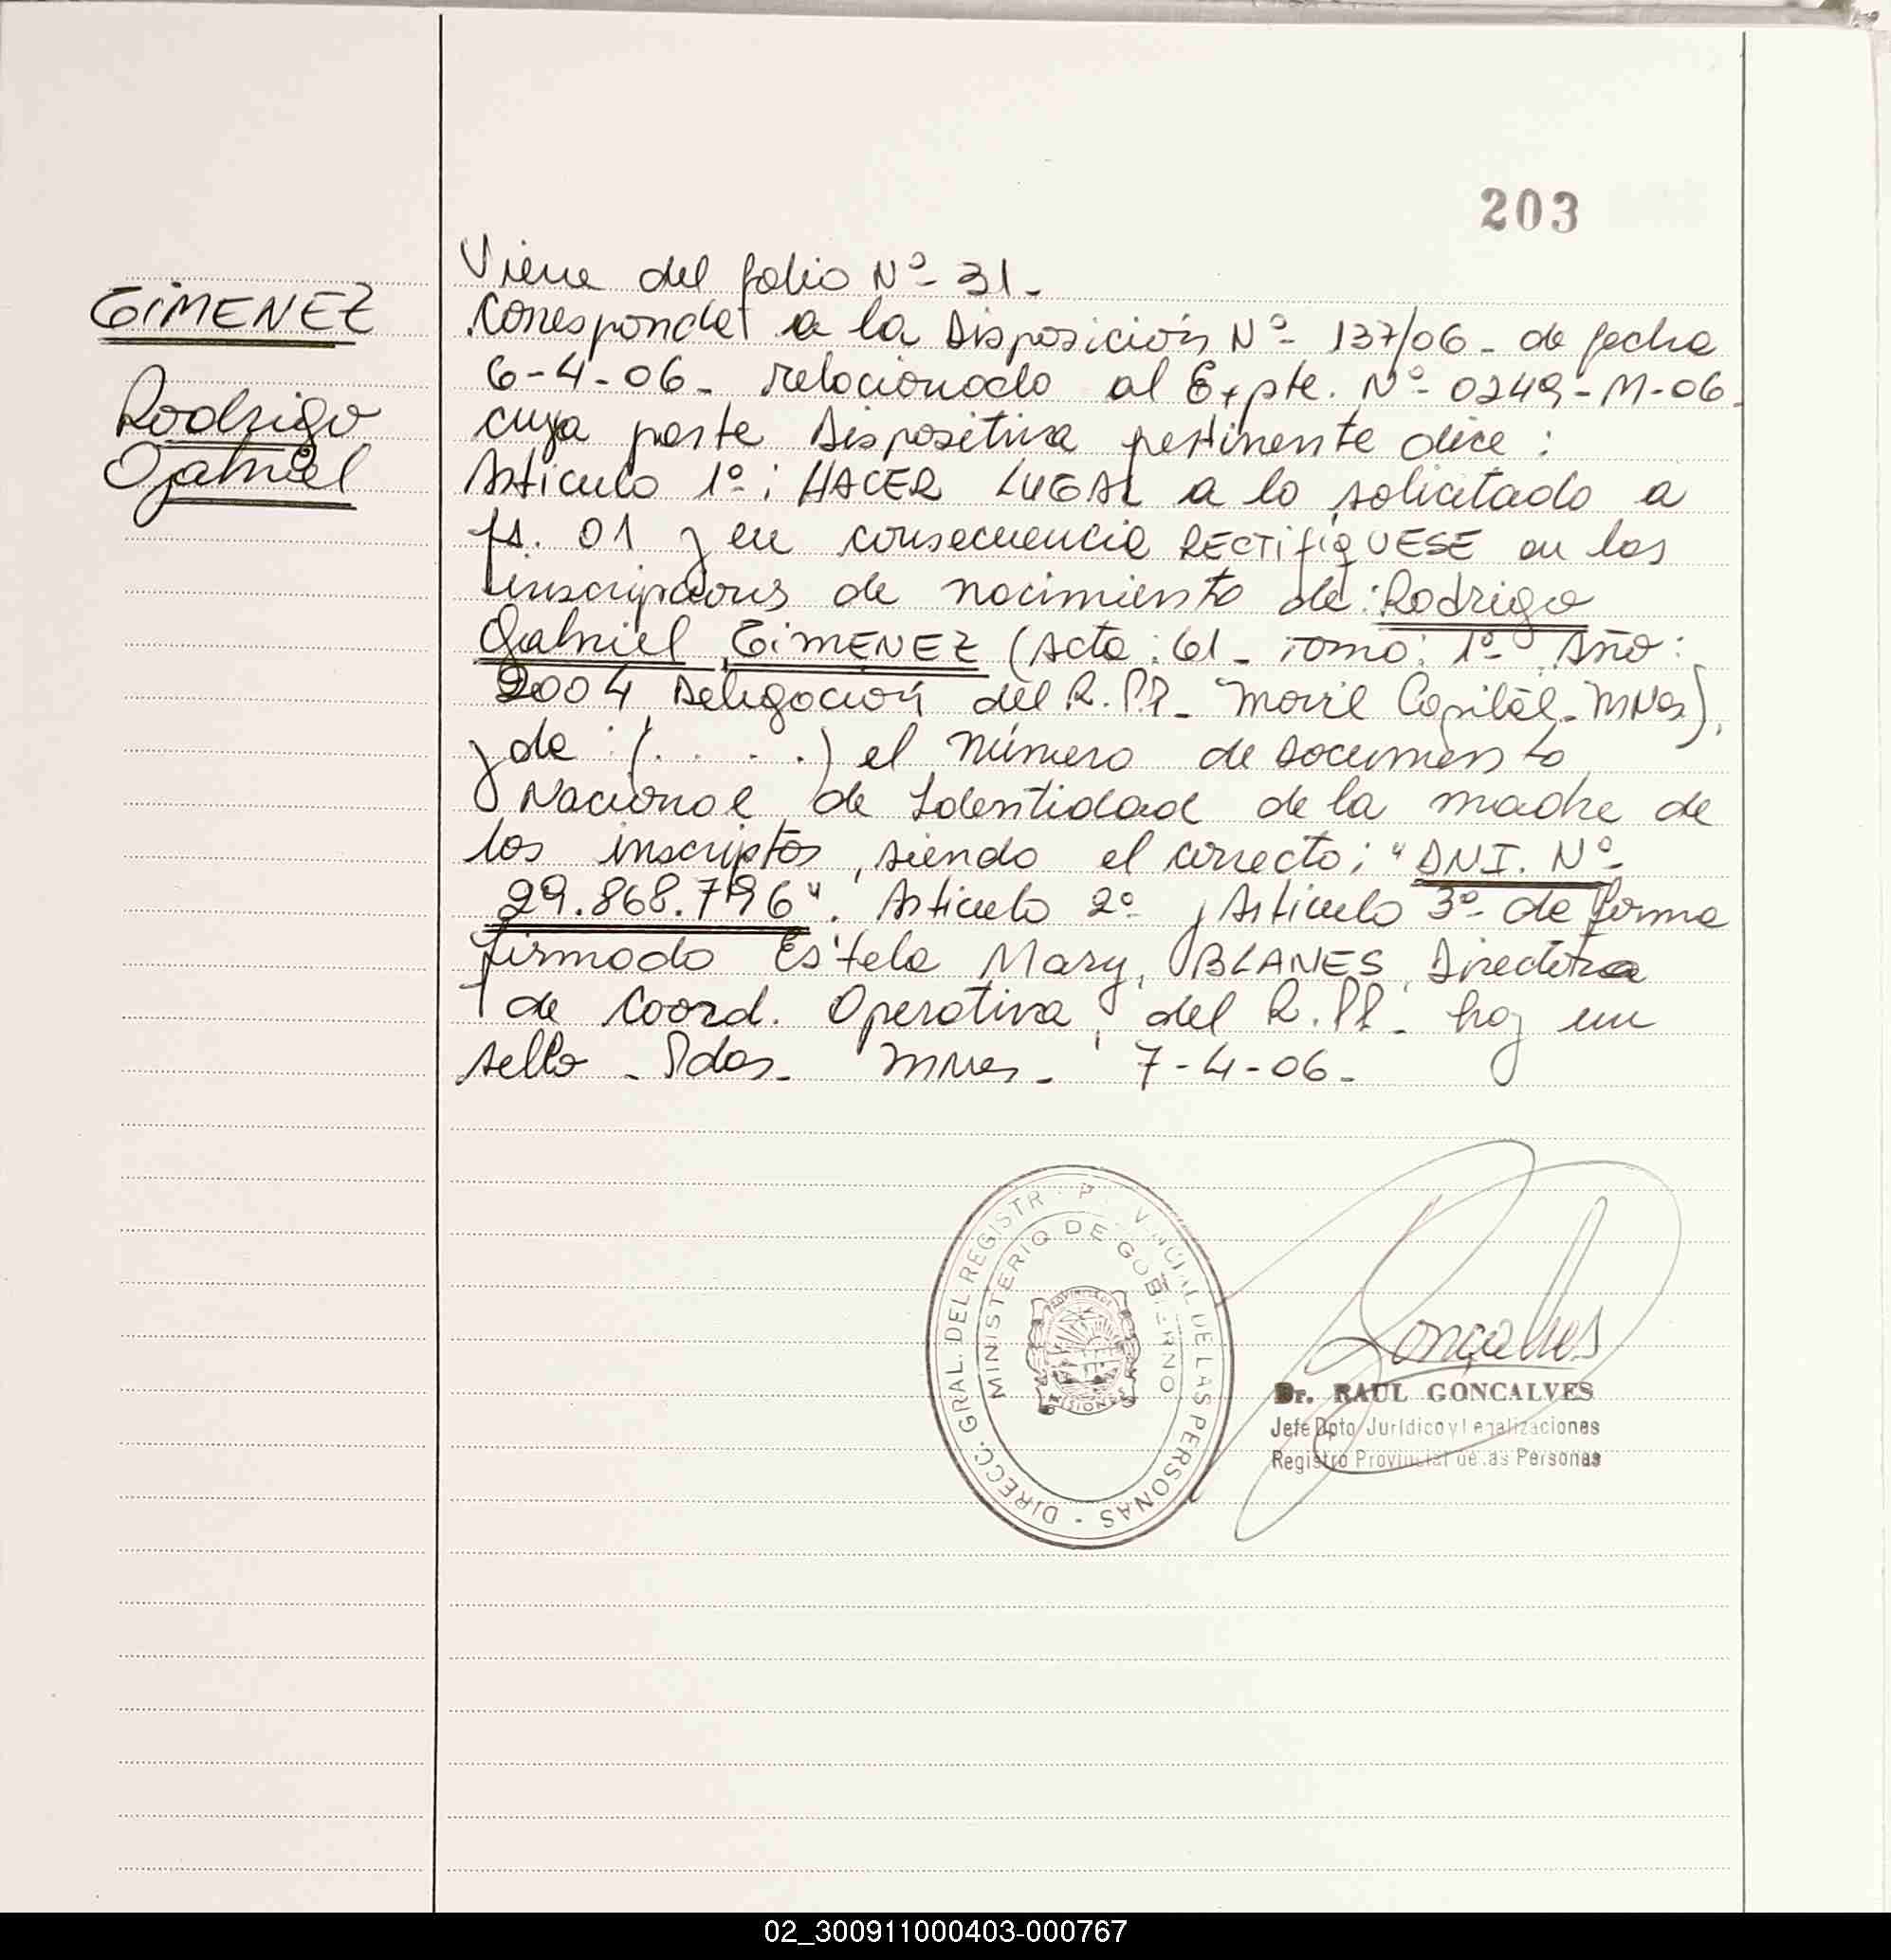 203
GIMENEZ
Rodrigo
Gabriel
Viene del folio Nº- 31-
Corresponde a la Disposición Nº- 137/06- de fecha
6-4-06- relacionado al Expte. Nº- 0249-M-06-
cuya parte Dispositiva pertinente dice:
Artículo 1º: HACER LUGAR a lo solicitado a
fs. 01 y en consecuencia RECTIFIQUESE en las
inscripciones de nacimiento de: Rodrigo
Gabriel GIMENEZ (Acta: 61- Tomo: 1º- Año:
2004 Delegación del R.PP- Movil Capital-Mnes),
y de (. . . . .) el número de Documento
Nacional de Identidad de la madre de
los inscriptos, siendo el correcto: "DNI. Nº-
29.868.796". Artículo 2º- y Artículo 3º- de forma
firmado Estela Mary, BLANES Directora
de Coord. Operativa, del R.PP- hay un
sello - Pdas- Mnes- 7-4-06-
DIRECC. GRAL. DEL REGISTR P VINCIAL DE LAS PERSONAS -
MINISTERIO DE GOBIERNO
MISIONES
Goncalves
Dr. RAUL GONCALVES
Jefe Dpto Jurídico y Legalizaciones
Registro Provincial de las Personas
02_300911000403-000767